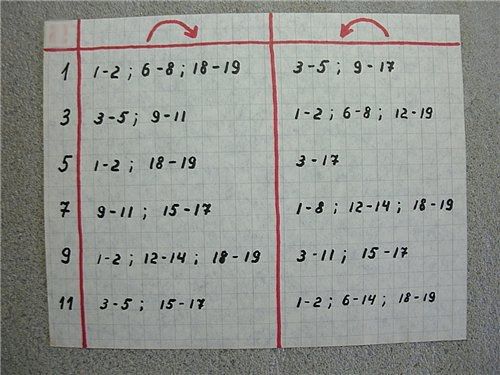 1 1-2 ; 6-8 ; 18-19 3-5 ; 9-17
3 3-5 ; 9-11 1-2 ; 6-8 ; 12-19
5 1-2 ; 18-19 3-17
7 9-11 ; 15-17 1-8 ; 12-14 ; 18-19
9 1-2 ; 12-14 ; 18-19 3-11 ; 15-17
11 3-5 ; 15-17 1-2 ; 6-14 ; 18-19